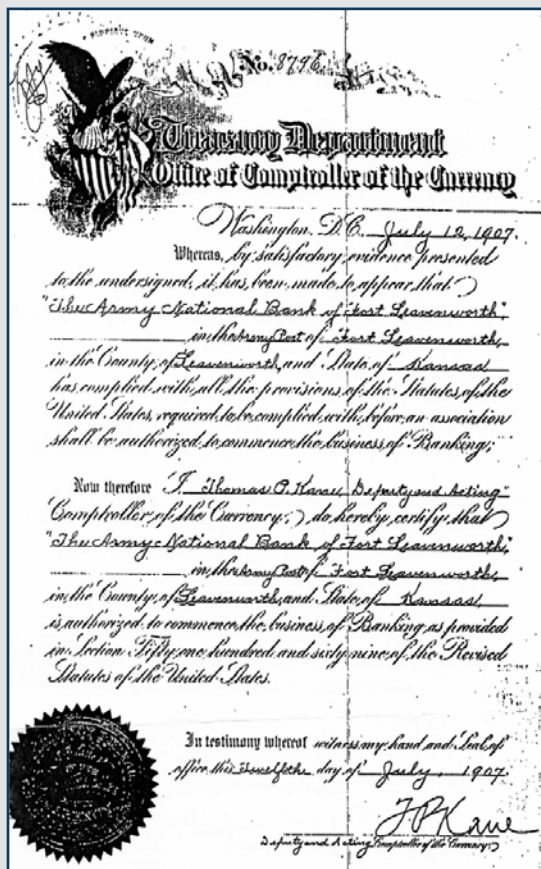 E PLURIBUS UNUM
No. 8796
Treasury Department
Office of Comptroller of the Currency
Washington, D.C. July 12, 1907.
Whereas, by satisfactory evidence presented
to the undersigned, it has been made to appear that
"The Army National Bank of Fort Leavenworth",
in the Army Post of Fort Leavenworth,
in the County of Leavenworth, and State of Kansas
has complied with all the provisions of the Statutes of the
United States, required to be complied with, before an association
shall be authorized to commence the business of Banking;
Now therefore I, Thomas P. Kane, Deputy and Acting
Comptroller of the Currency, do hereby certify that
"The Army National Bank of Fort Leavenworth",
in the Army Post of Fort Leavenworth,
in the County of Leavenworth, and State of Kansas,
is authorized to commence the business of Banking, as provided
in Section Fifty one hundred and sixty nine of the Revised
Statutes of the United States.
In testimony whereof witness my hand and Seal of
office this Twelfth day of July, 1907.
T P Kane
Deputy and Acting Comptroller of the Currency.